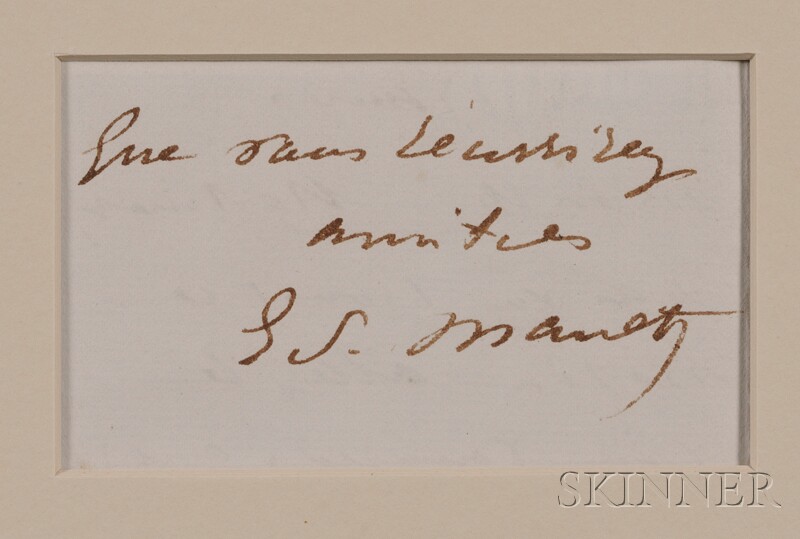 que vous réussirez
amitiés
Ed. Manet
SKINNER